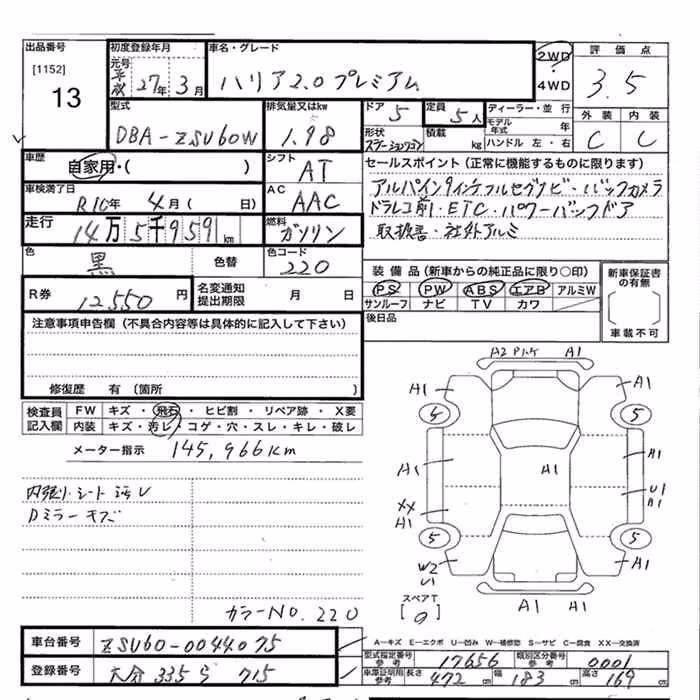 出品番号 初度登録年月 車名・グレード 2WD・4WD 評価点
[1152] 13
元号 平成 27年 3月
ハリア2.0プレミアム
3.5
型式 DBA-ZSU60W
排気量又はkw 1.98
ドア 5
定員 5人
ディーラー・並行
モデル年式 年
外装 内装
C C
形状 ステーションワゴン
積載 kg
ハンドル 左・右
車歴 自家用・( )
シフト AT
セールスポイント (正常に機能するものに限ります)
車検満了日 R10年 4月( 日)
AC AAC
アルパイン9インチフルセグナビ・バックカメラ
ドラレコ前・ETC・パワーバックドア
取扱書・社外アルミ
走行 14万5千959km
燃料 ガソリン
色 黒 色替
色コード 220
装備品 (新車からの純正品に限り○印)
新車保証書の有無
PS PW ABS エアB アルミW
サンルーフ ナビ TV カワ
車載不可
R券 12550円
名変通知提出期限 月 日
後日品
注意事項申告欄 (不具合内容等は具体的に記入して下さい)
修復歴 有 (箇所 )
検査員記入欄
FW キズ・飛石・ヒビ割・リペア跡・X要
内装 キズ・汚レ・コゲ・穴・スレ・キレ・破レ
メーター指示 145,966km
内張り・シート汚レ
Dミラーキズ
カラーNO.220
A2 A1
A1 A1
5 5
A1 A1 A1
XX A1 U1 A1
5 5
W2 U1 A1
A1 A1
スペアT
[9]
A―キズ E―エクボ U―凹み W―補修跡 S―サビ C―腐食 XX―交換済
車台番号 ZSU60-0044075
型式指定番号 参考 17656
類別区分番号 参考 0001
登録番号 大分 335 ら 715
車庫証明用 参考 長さ 472cm 幅 183cm 高さ 169cm